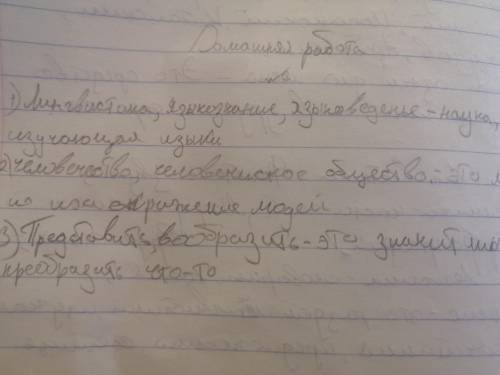 Домашняя работа
1) Лингвистика, языкознание, языковеденье - наука,
изучающая языки
2) человечество, человеческое общество - это
людей
3) Представить, вообразить - это значит
преобразить что-то